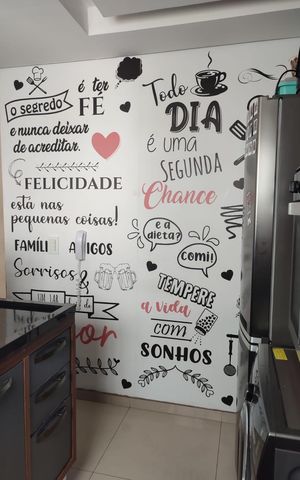 o segredo
é ter
FÉ
e nunca deixar
de acreditar.
FELICIDADE
está nas
pequenas coisas!
FAMÍLI
Sorrisos
&
UM LAR
Todo
DIA
é uma
SEGUNDA
Chance
e a
dieta?
comi!
TEMPERE
a vida
com
SONHOS